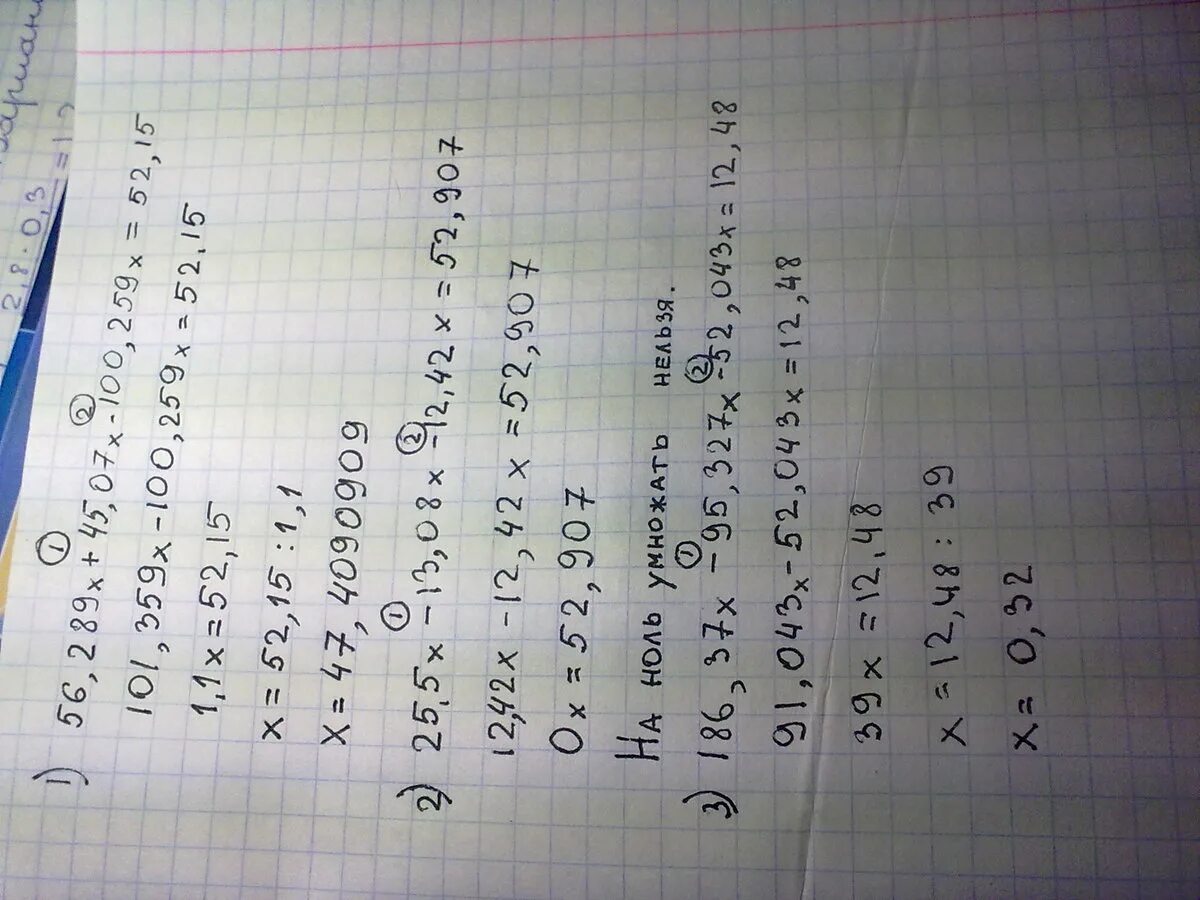 2,8 · 0,3
= 1
1) 56,289x + 45,07x - 100,259x = 52,15
① ②
101,359x - 100,259x = 52,15
1,1x = 52,15
x = 52,15 : 1,1
x = 47,4090909
2) 25,5x - 13,08x - 12,42x = 52,907
① ②
12,42x - 12,42x = 52,907
0x = 52,907
На ноль умножать нельзя.
3) 186,37x - 95,327x - 52,043x = 12,48
① ②
91,043x - 52,043x = 12,48
39x = 12,48
x = 12,48 : 39
x = 0,32